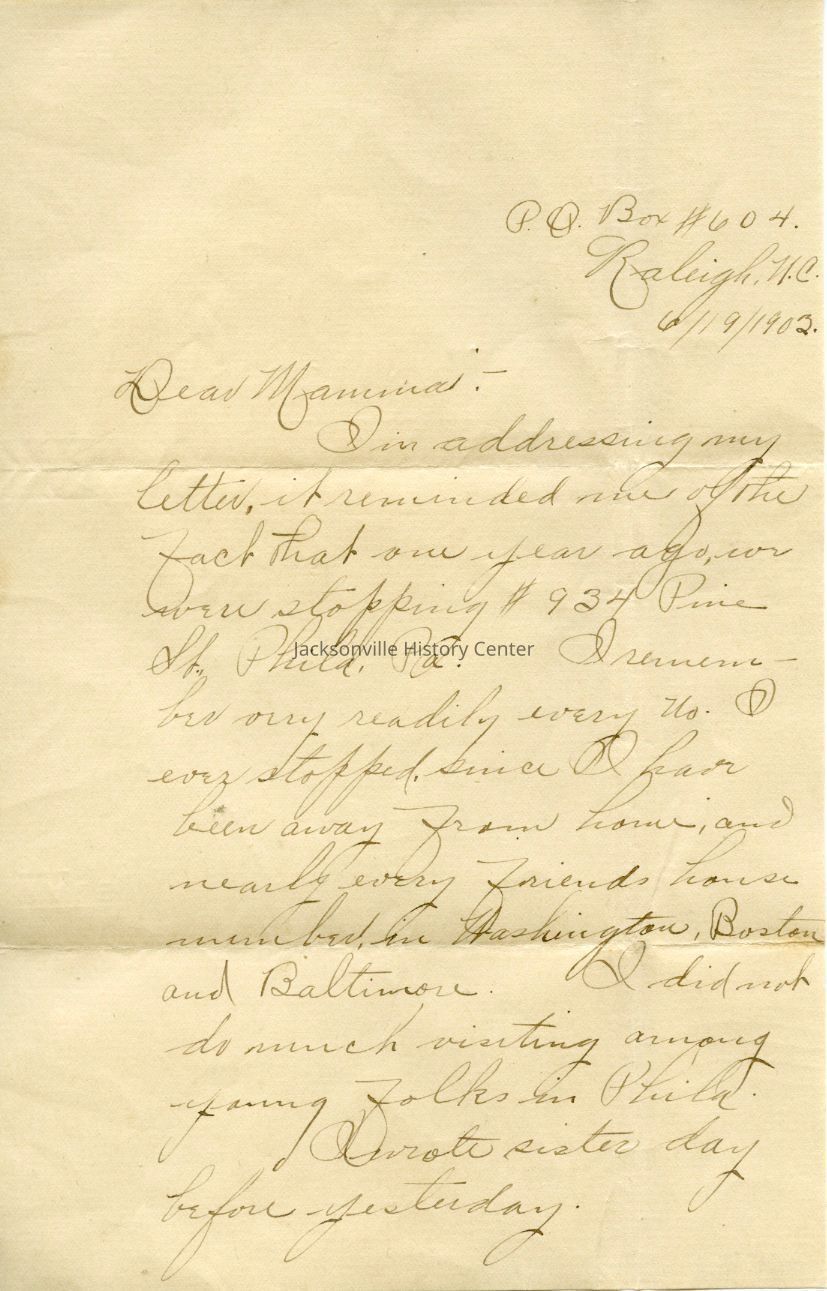 P.O. Box #604.
Raleigh, N.C.
6/19/1903.
Dear Mamma:-
In addressing my
letter, it reminded me of the
fact that one year ago, we
were stopping # 934 Pine
St. Phila. Pa. I remem-
ber very readily every No. I
ever stopped, since I have
been away from home, and
nearly every friends house
number, in Washington, Boston
and Baltimore. I did not
do much visiting among
young folks in Phila.
I wrote sister day
before yesterday.
Jacksonville History Center